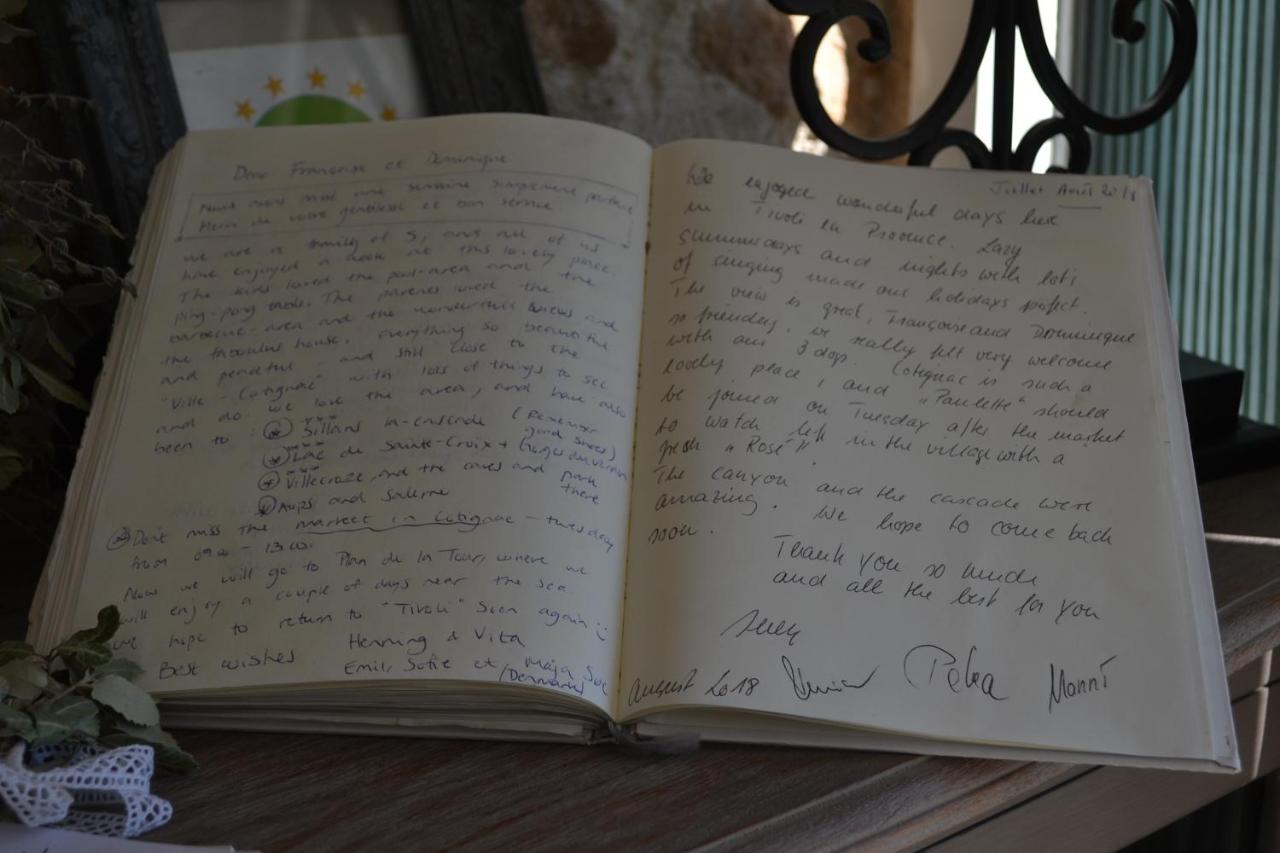 Dear Françoise et Dominique
Nous avons passé une semaine simplement parfaite
Merci de votre gentilesse et bon service
We are a family of 5, and all of us
have enjoyed a week at this lovely place.
The kids loved the pool-area and the
ping-pong table. The parents loved the
barbecue-area and the wonderfull views and
the fabulous house. everything so beautiful
and peaceful and still close to the
"Ville - Cotignac" with lots of things to see
and do. We love the area, and have also
been to: Sillans la-cascade (Remember
good shoes)
Lac de Sainte-Croix + Gorges du Verdon
Villecroze, and the caves and park
there
Aups and Salerne
Don't miss the market in Cotignac - tuesday
from 09.00 - 13.00.
Now we will go to Plan de la Tour, where we
will enjoy a couple of days near the sea.
We hope to return to "Tivoli" Soon again :)
Best wishes Henning & Vita
Emil, Sofie et Maja Soe
(Denmark)
Juillet Août 2018
We enjoyed wonderful days here
in Tivoli en Provence. Lazy
summerdays and nights with lots
of singing made our holidays perfect.
The view is great, Françoise and Dominique
so friendly. We really felt very welcome
with our 3 dogs. Cotignac is such a
lovely place, and "Paulette" should
be joined on Tuesday after the market
to watch life in the village with a
fresh "Rosé".
The canyon and the cascade were
amazing. We hope to come back
soon.
Thank you so much
and all the best for you
August 2018 Petra Manni